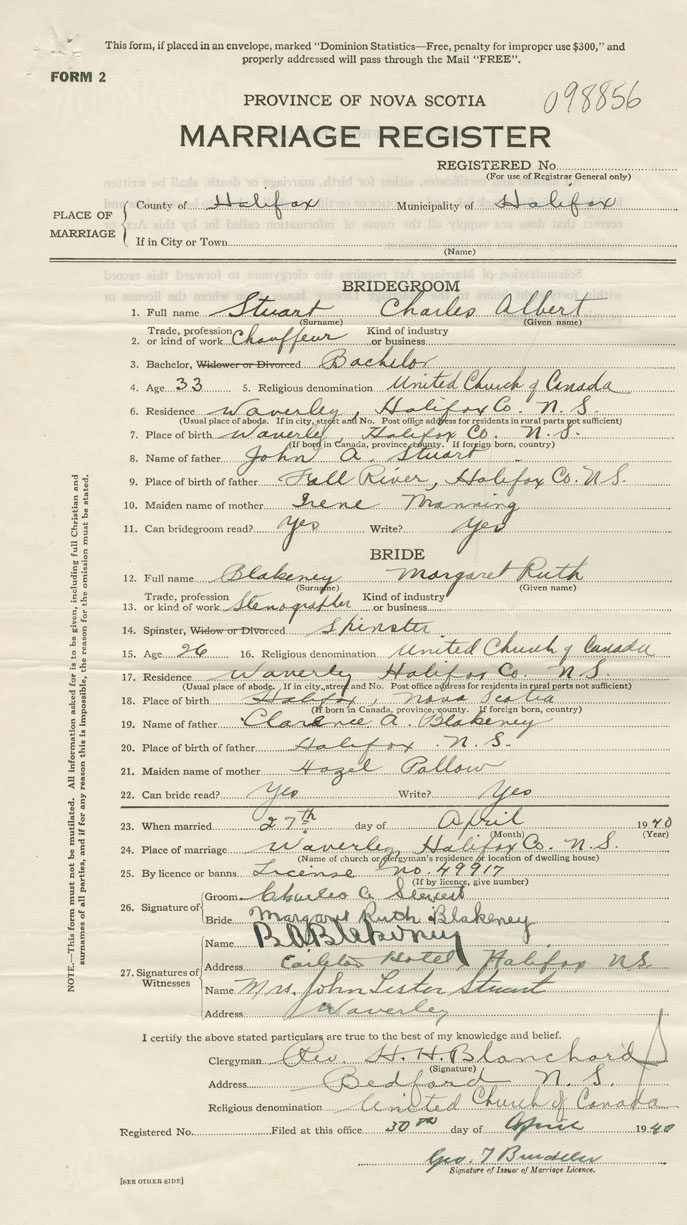 This form, if placed in an envelope, marked "Dominion Statistics—Free, penalty for improper use $300," and
properly addressed will pass through the Mail "FREE".
FORM 2
PROVINCE OF NOVA SCOTIA
098856
MARRIAGE REGISTER
REGISTERED No.
(For use of Registrar General only)
PLACE OF MARRIAGE
County of Halifax Municipality of Halifax
If in City or Town
(Name)
BRIDEGROOM
1. Full name Stuart Charles Albert
(Surname) (Given name)
2. Trade, profession or kind of work Chauffeur Kind of industry or business
3. Bachelor, Widower or Divorced Bachelor
4. Age 33 5. Religious denomination United Church of Canada
6. Residence Waverley, Halifax Co. N.S.
(Usual place of abode. If in city, street and No. Post office address for residents in rural parts not sufficient)
7. Place of birth Waverley, Halifax Co. N.S.
(If born in Canada, province, county. If foreign born, country)
8. Name of father John A. Stuart
9. Place of birth of father Fall River, Halifax Co. N.S.
10. Maiden name of mother Irene Manning
11. Can bridegroom read? Yes Write? Yes
BRIDE
12. Full name Blakeney Margaret Ruth
(Surname) (Given name)
13. Trade, profession or kind of work Stenographer Kind of industry or business
14. Spinster, Widow or Divorced Spinster
15. Age 26 16. Religious denomination United Church of Canada
17. Residence Waverly Halifax Co. N.S.
(Usual place of abode. If in city, street and No. Post office address for residents in rural parts not sufficient)
18. Place of birth Halifax, Nova Scotia
(If born in Canada, province, county. If foreign born, country)
19. Name of father Clarence A. Blakeney
20. Place of birth of father Halifax N.S.
21. Maiden name of mother Hazel
22. Can bride read? Yes Write? Yes
23. When married 27th day of April 1940
(Month) (Year)
24. Place of marriage Waverley, Halifax Co. N.S.
(Name of church or clergyman's residence or location of dwelling house)
25. By licence or banns License No. 49917
(If by licence, give number)
26. Signature of
Groom Charles A Stewart
Bride Margaret Ruth Blakeney
27. Signatures of Witnesses
Name Blakeney
Address Carleton Hotel, Halifax N.S.
Name Mrs. John Lester Stuart
Address Waverley
I certify the above stated particulars are true to the best of my knowledge and belief.
Clergyman Rev. H. H. Blanchard
(Signature)
Address Bedford N.S.
Religious denomination United Church of Canada
Registered No. Filed at this office 30th day of April 1940
Geo. T
Signature of Issuer of Marriage Licence.
[SEE OTHER SIDE]
NOTE.—This form must not be mutilated. All information asked for is to be given, including full Christian and
surnames of all parties, and if for any reason this is impossible, the reason for the omission must be stated.